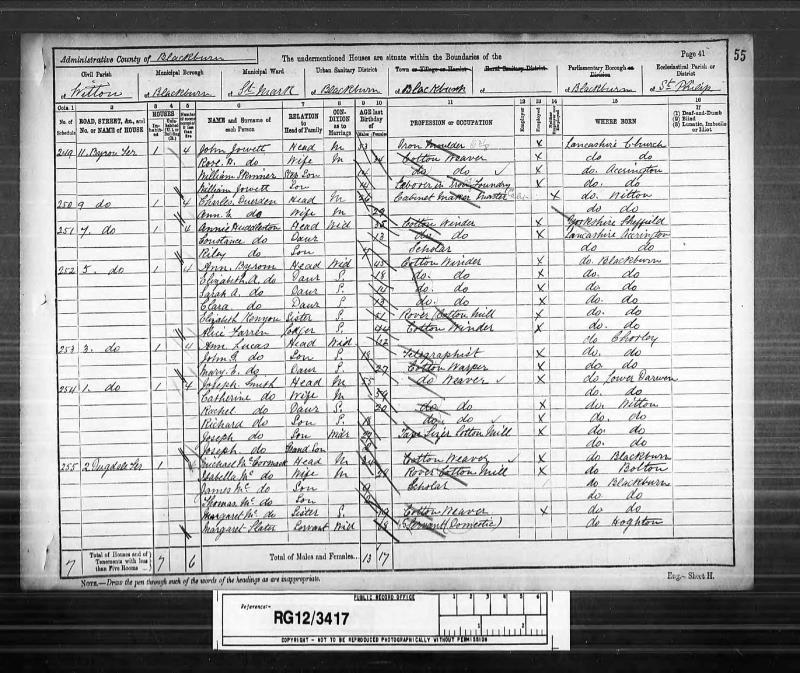 Administrative County of Blackburn The undermentioned Houses are situate within the Boundaries of the Page 41 55
Civil Parish Municipal Borough Municipal Ward Urban Sanitary District Town or Village or Hamlet Rural Sanitary District Parliamentary Borough or Division Ecclesiastical Parish or District
of Witton of Blackburn of St Mark of Blackburn of Blackburn of of Blackburn of St Philip
Cols. 1 2 3 4 5 6 7 8 9 10 11 12 13 14 15 16
No. of Schedule ROAD, STREET, &c., and No. or NAME of HOUSE HOUSES NAME and Surname of each Person RELATION to Head of Family CONDITION as to Marriage AGE last Birthday of PROFESSION or OCCUPATION Employer Employed WHERE BORN If (1) Deaf-and-Dumb (2) Blind (3) Lunatic, Imbecile or Idiot
Males Females
249 11 Byron Ter 1 4 John Jowett Head M 53 Iron Moulder X Lancashire Church
Rose A. do Wife M Cotton Weaver X do do
William Skinner Step Son 14 do do X do. Accrington
William Jowett Son 14 Labourer in Iron Foundry X do. do
250 9 do 1 4 Charles Duerden Head M 26 Cabinet Maker Master X do. Witton
Ann E. do Wife M 29 do do
251 7. do 1 4 Annie Huddleston Head Wid 35 Cotton Winder X Yorkshire Sheffield
Constance do Daur 13 do do X Lancashire Accrington
Riley do Son Scholar do do
252 5. do 4 Ann Byrom Head Wid 45 Cotton Winder X do. Blackburn
Elizabeth A. do Daur S. 18 do. do. X do. do
Sarah A. do Daur S. do. do. X do. do
Clara do Daur S. 13 do. do. X do. do
Elizabeth Kenyon Sister S. Rover (Cotton Mill X do. do
Alice Farren Lodger S. 44 Cotton Winder X do. do
253 3. do 1 4 Ann Lucas Head Wid 62 do Chorley
John do Son S. 18 Telegraphist X do. do
Mary E. do Daur S. 27 Cotton Warper X do. do
254 1. do 1 4 Joseph Smith Head M 55 do Weaver X do Lower Darwen
Catherine do Wife M 59 do. do
Rachel do Daur S. 20 do do X do. Witton
Richard do Son S. 18 do. do X do. do
Joseph do Son Mar Tape Sizer Cotton Mill X do. do
Joseph do Grand Son do. do
255 2 Dugdale Ter 1 Michael McCormack Head M 24 Cotton Weaver X do Blackburn
Isabella Mc do Wife M Rover Cotton Mill X do Bolton
James Mc do Son Scholar do Blackburn
Thomas Mc do Son do do
Margaret Mc do Sister S. 19 Cotton Weaver X do do
Margaret Slater Servant Wid (Servant (Domestic) do Hoghton
7 Total of Houses and of Tenements with less than Five Rooms 7 6 Total of Males and Females... 13 17
NOTE.—Draw the pen through such of the words of the headings as are inappropriate. Eng.—Sheet H.
PUBLIC RECORD OFFICE
Reference:-
RG12/3417
COPYRIGHT - NOT TO BE REPRODUCED PHOTOGRAPHICALLY WITHOUT PERMISSION